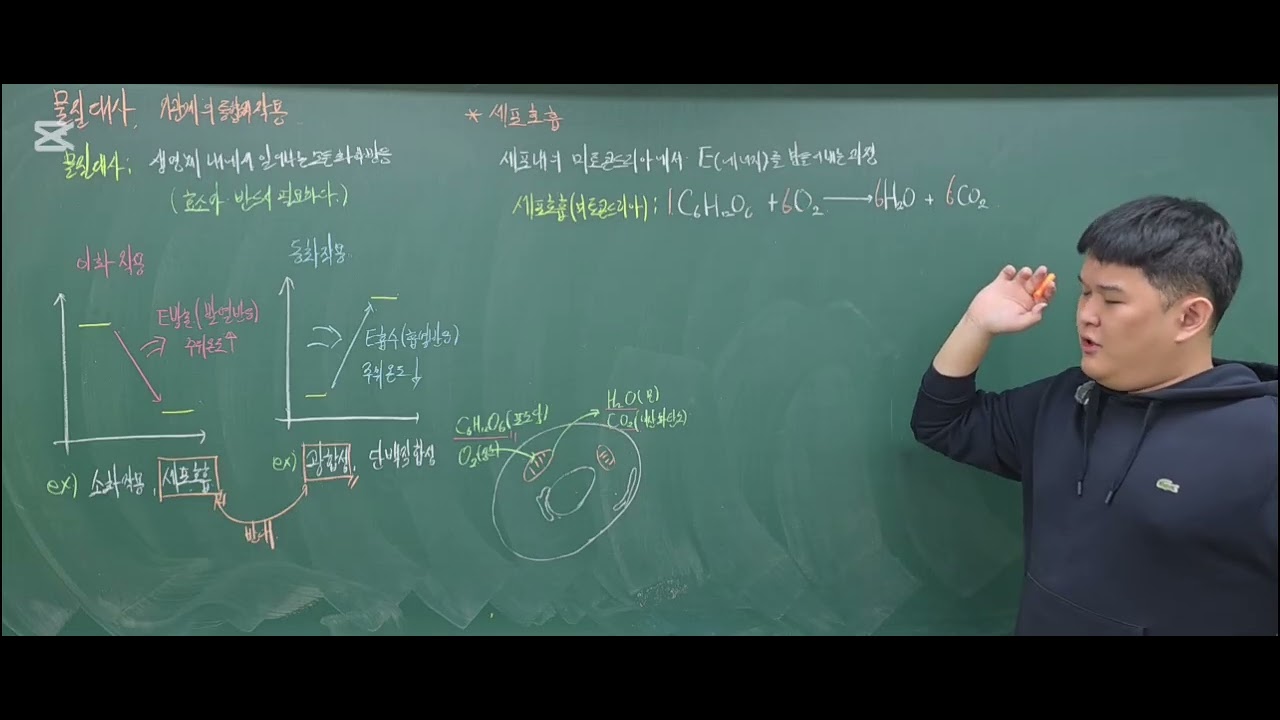 물질대사, 기관계의 통합적 작용
물질대사: 생명체 내에서 일어나는 모든 화학반응
(효소가 반드시 필요하다.)
이화작용
E방출(발열반응)
주위온도↑
ex) 소화작용, 세포호흡
동화작용
E흡수(흡열반응)
주위온도↓
ex) 광합성, 단백질합성
반대
* 세포호흡
세포내의 미토콘드리아에서 E(에너지)를 만들어내는 과정
세포호흡(미토콘드리아): 1C₆H₁₂O₆ + 6O₂ → 6H₂O + 6CO₂
C₆H₁₂O₆(포도당)
O₂(산소)
H₂O(물)
CO₂(이산화탄소)